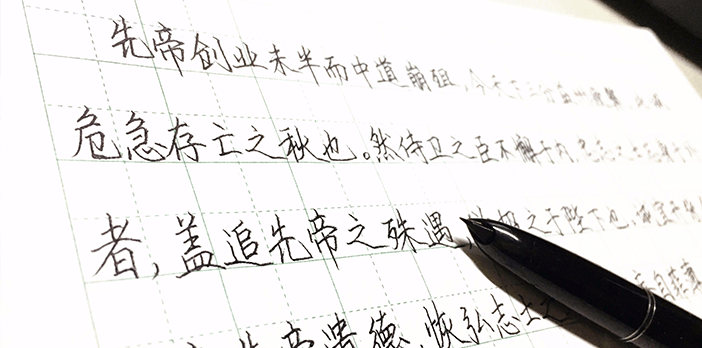 先帝创业未半而中道崩殂，今天下三分，益州疲弊，此诚
危急存亡之秋也。然侍卫之臣不懈于内，忠志之士忘身于外
者，盖追先帝之殊遇，之于陛下也。诚宜开张
先帝遗德，恢弘志士之 自菲薄